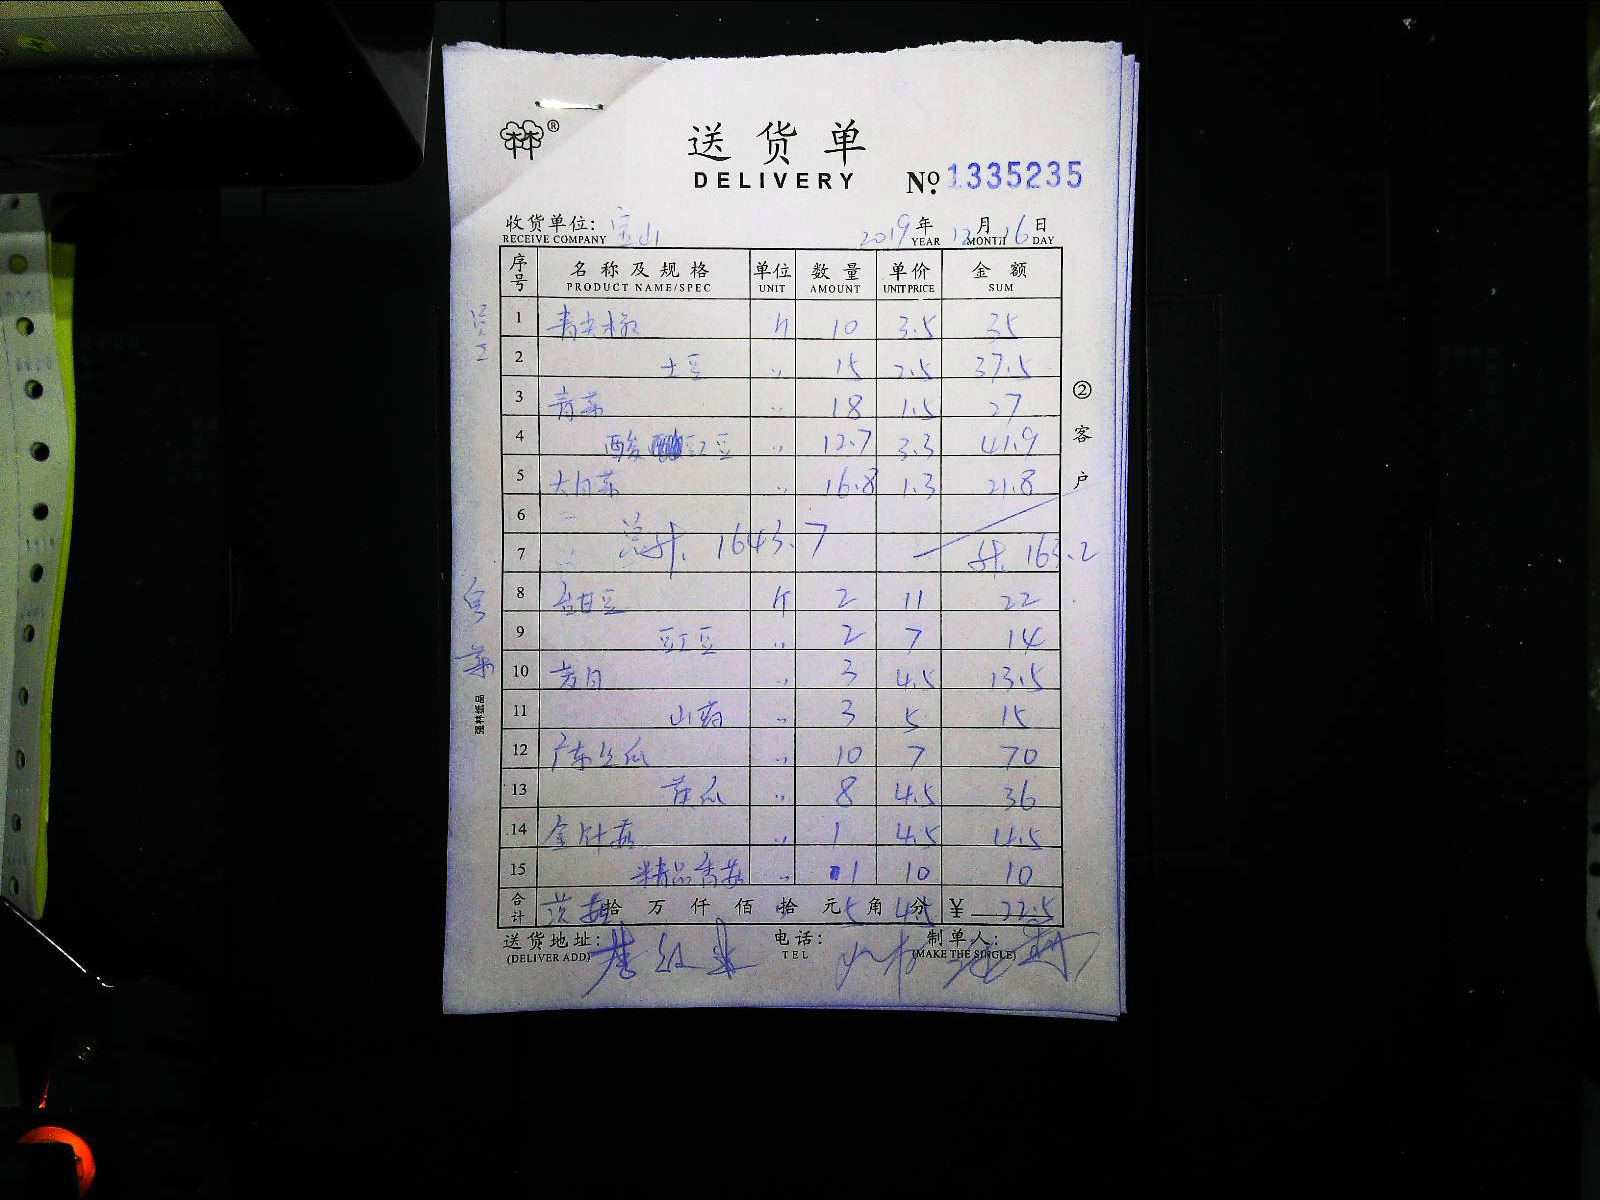 送货单
DELIVERY
№ 1335235
收货单位: 宝山 2019年 12月 16日
RECEIVE COMPANY YEAR MONTH DAY
序号 名称及规格 单位 数量 单价 金额
PRODUCT NAME/SPEC UNIT AMOUNT UNIT PRICE SUM
1 青尖椒 斤 10 3.5 35
2 土豆 〃 15 2.5 37.5
3 青菜 〃 18 1.5 27
4 酸豇豆 〃 12.7 3.3 41.9
5 大白菜 〃 16.8 1.3 21.8
6
7 总计. 1643.7 计. 163.2
8 甜豆 斤 2 11 22
9 豇豆 〃 2 7 14
10 茭白 〃 3 4.5 13.5
11 山药 〃 3 5 15
12 广东丝瓜 〃 10 7 70
13 黄瓜 〃 8 4.5 36
14 金针菇 〃 1 4.5 4.5
15 精品香菇 〃 1 10 10
合计 茨菇 拾万仟佰拾元 5 角 4.5 分 ¥ 22.5
送货地址: 电话: 制单人:
(DELIVER ADD) TEL (MAKE THE SINGLE)
②客户
员工
食菜
强林纸品